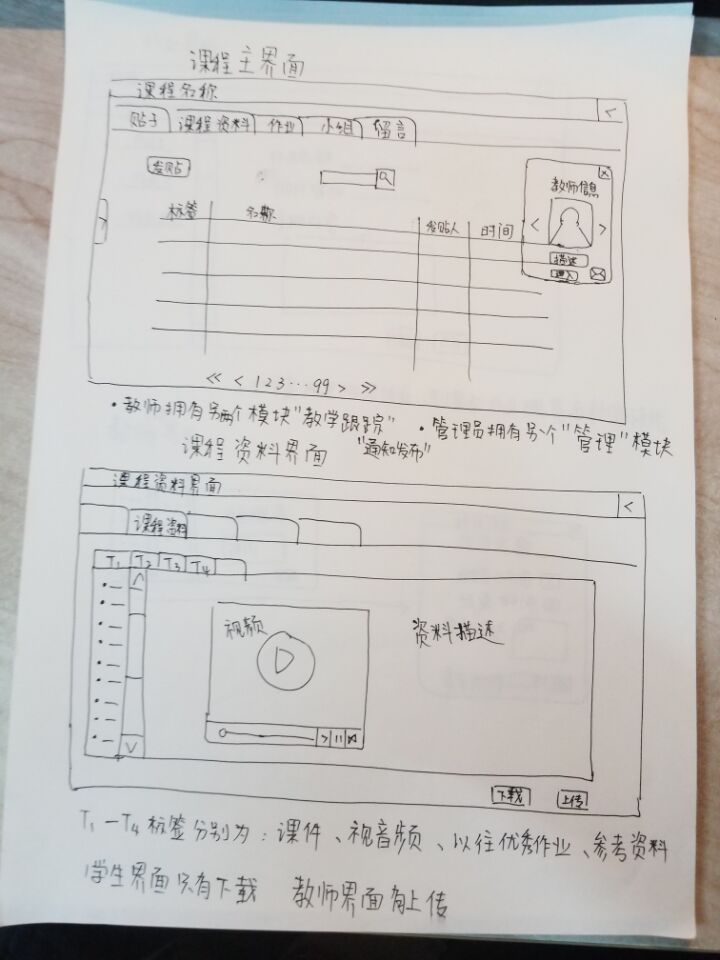 课程主界面
课程名称 <
贴子 课程资料 作业 小组 留言
发贴
x
教师信息
< >
描述
进入
标签 名称 发贴人 时间
>
<< < 1 2 3 … 99 > >>
• 教师拥有另两个模块“教学跟踪” • 管理员拥有另一个“管理”模块
“通知发布”
课程资料界面
课程资料界面 <
课程资料
T1 T2 T3 T4
视频
资料描述
下载 上传
T1—T4标签分别为：课件、视音频、以往优秀作业、参考资料
学生界面只有下载 教师界面有上传